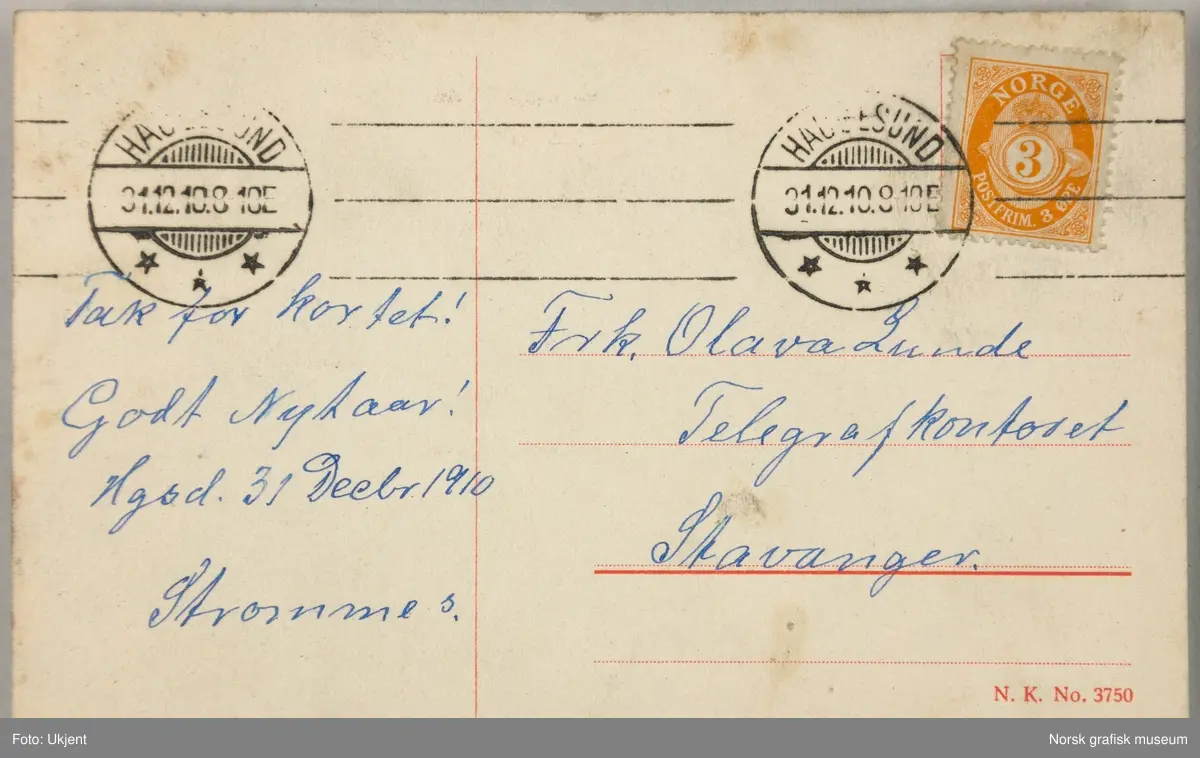 HAUGESUND
31.12.10.8-10E
HAUGESUND
31.12.10.8-10E
NORGE
3
POSTFRIM. 3 ØRE
Tak for kortet!
Godt Nytaar!
Hgsd. 31 Decbr. 1910
Strømme s.
Frk. Olava Lunde
Telegrafkontoret
Stavanger.
N. K. No. 3750
Foto: Ukjent
Norsk grafisk museum